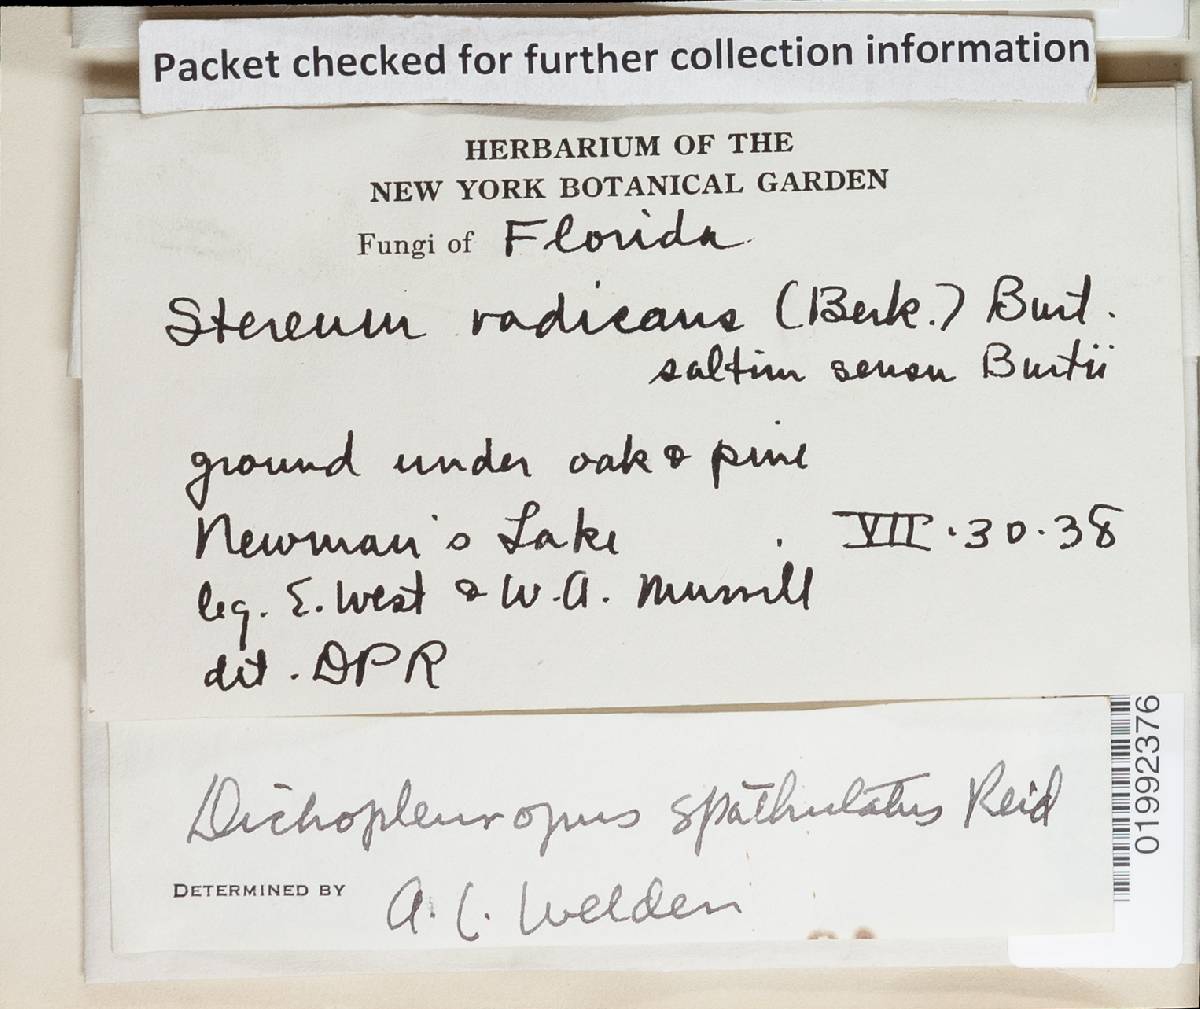 Packet checked for further collection information
HERBARIUM OF THE
NEW YORK BOTANICAL GARDEN
Fungi of Florida.
Stereum radicans (Berk.) Burt.
saltim sensu Burtii
ground under oak & pine
Newman's Lake . VII.30.38
leg. E. West & W.A. Murrill
det. DPR
01992376
Dichopleuropus spathulatus Reid
DETERMINED BY A. L. Welden